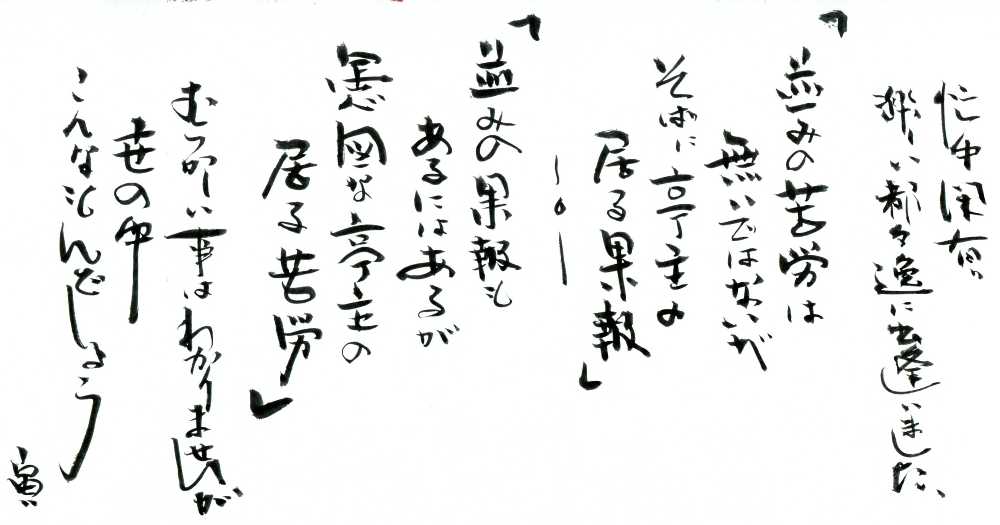 忙中閑有。
楽しい都々逸に出逢いました、
「並みの苦労は
無いではないが
そばに亭主の
居る果報」
「並みの果報も
あるにはあるが
愚図な亭主の
居る苦労」
むつかしい事はわかりませんが
世の中
こんなもんでしょう